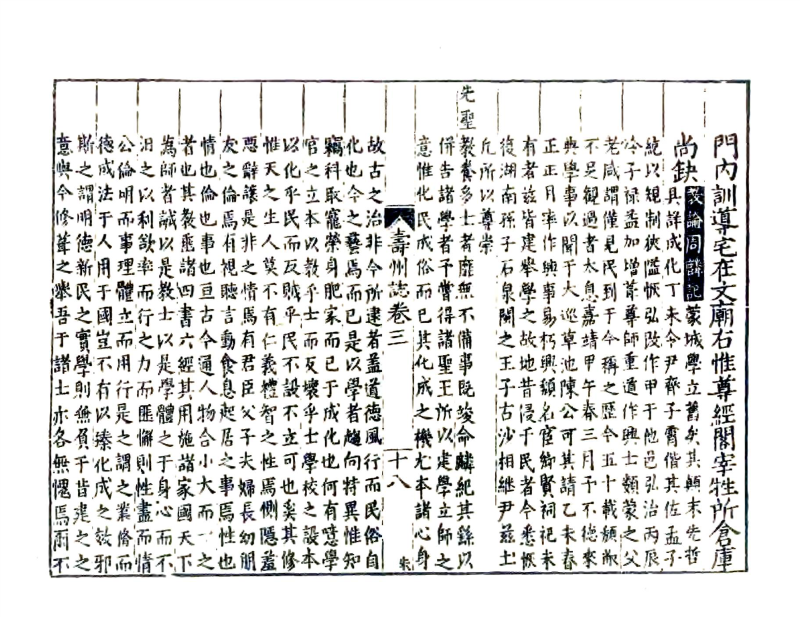 門内訓導宅在文廟右惟尊經閣宰牲所倉庫
尚缺教諭周麟記蒙城學立舊矣其顛末先哲
具詳成化丁未令尹齊子霄偕其佐孟子
統以規制狹隘恢弘改作甲于他邑弘治丙辰
令子禄益加增葺尊師重道作興士類蒙之父
老咸謂僅見民到于今稱之歷今五十載頽敝
不足觀過者太息嘉靖甲午春三月予不德來
典學事以聞于大巡草池陳公可其請乙未春
正正月率作興事易朽興頽名宦鄉賢祠祀未
有者兹皆建舉學之故地昔侵于民者今悉恢
復湖南孫子石泉闕之王子古沙相繼尹兹土
凡所以尊崇
先聖教養多士者靡無不備事既竣命麟紀其錄以
併告諸學者予嘗得諸聖王所以建學立師之
意惟化民成俗而已其化成之機尤本諸心身
壽州誌卷三 十八
故古之治非今所逮者蓋道德風行而民俗自
化也今之藝焉而已是以學者趨向特異惟知
竊科取寵榮身肥家而已于成化也何有噫學
官之立本以教乎士而反壞乎士學校之設本
以化乎民而反賊乎民不設不立可也奚其修
惟天之生人莫不有仁義禮智之性焉惻隱羞
惡辭讓是非之情焉有君臣父子夫婦長幼朋
友之倫焉有視聽言動食息起居之事焉性也
情也倫也事也亘古今通人物合小大而一之
者也其教匪諸四書六經其用施諸家國天下
為師者誠以是教士以是學體之于身心而不
汨之以利欲率而行之力而匪懈則性盡而情
公倫明而事理體立而用行是之謂之業脩而
德成法于人用于國豈不有以臻化成之效耶
斯之謂明德新民之實學則無負于皆建之之
意與今修葺之舉吾于諸士亦各無愧焉爾不